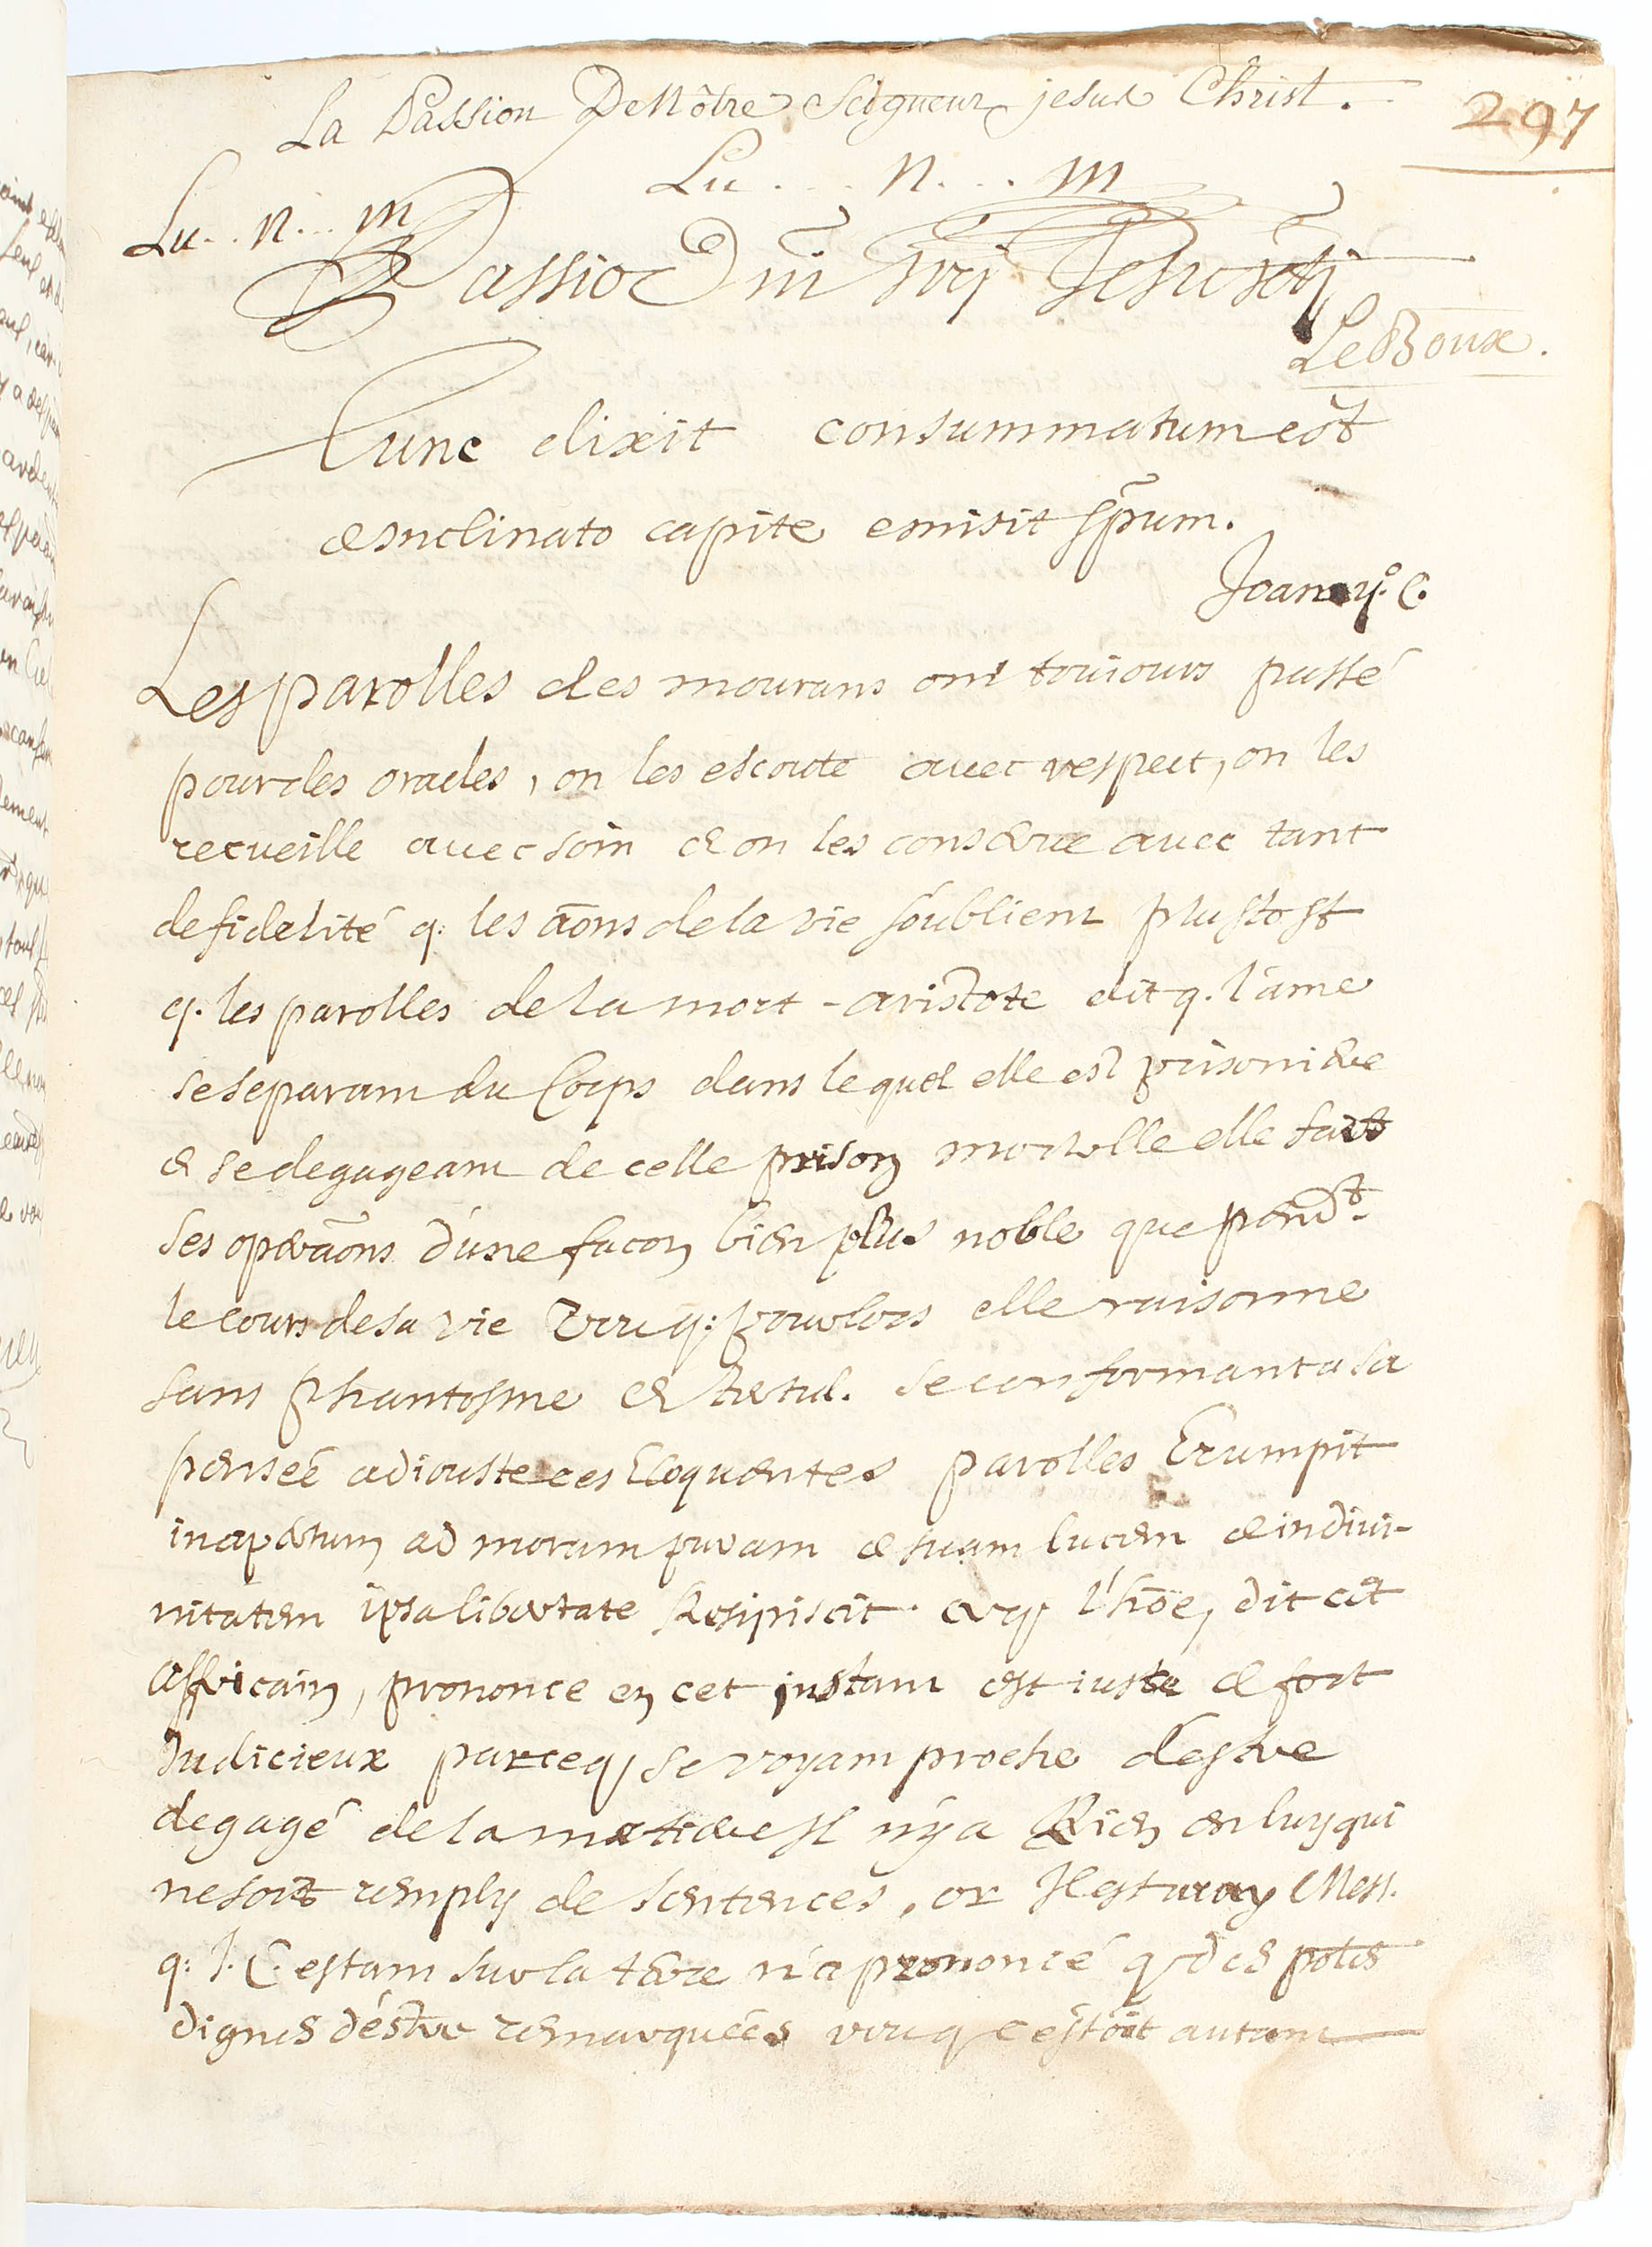 La Passion De Nôtre Seigneur jesus Christ.
297
Lu . . . N . . . m
Lu . . N . . . m
Passio Dñi nrj Jesu xpti
Le Boux.
Tunc dixit consummatum est
& inclinato capite emisit spum.
Joan 19.° C.
Les parolles des mourans ont toujours passé
pour des oracles, on les escoute avec respect, on les
recueille avec soin & on les conserve avec tant
de fidelité q: les aōns de la vie s'oublient plustost
q. les parolles de la mort - aristote dit q. l'ame
se separant du Corps dans lequel elle est prisoniere
& se degageant de celle prison mortelle elle fait
ses operaōns d'une facon bien plus noble que pend.t
le cours de sa vie veu q: pour lors elle raisonne
sans phantosme & tertul. se conformant a sa
pensée adiouste ces Eloquentes parolles Erumpit
in apertum ad meram puram & suam lucem & in divi-
nitatem ipsa libertate Resipiscit. ce q l'hōe, dit cet
affricain, prononce en cet instant est iuste & fort
Judicieux parceq, se voyant proche d'estre
degagé de la matiere Jl n'y a Rien en luy qui
ne soit remply de sentences, or Jl est vray Mess.
q: J. C. estant sur la terre n'a prononcé q des poles
dignes d'éstre remarquées veu q c'estoit autant